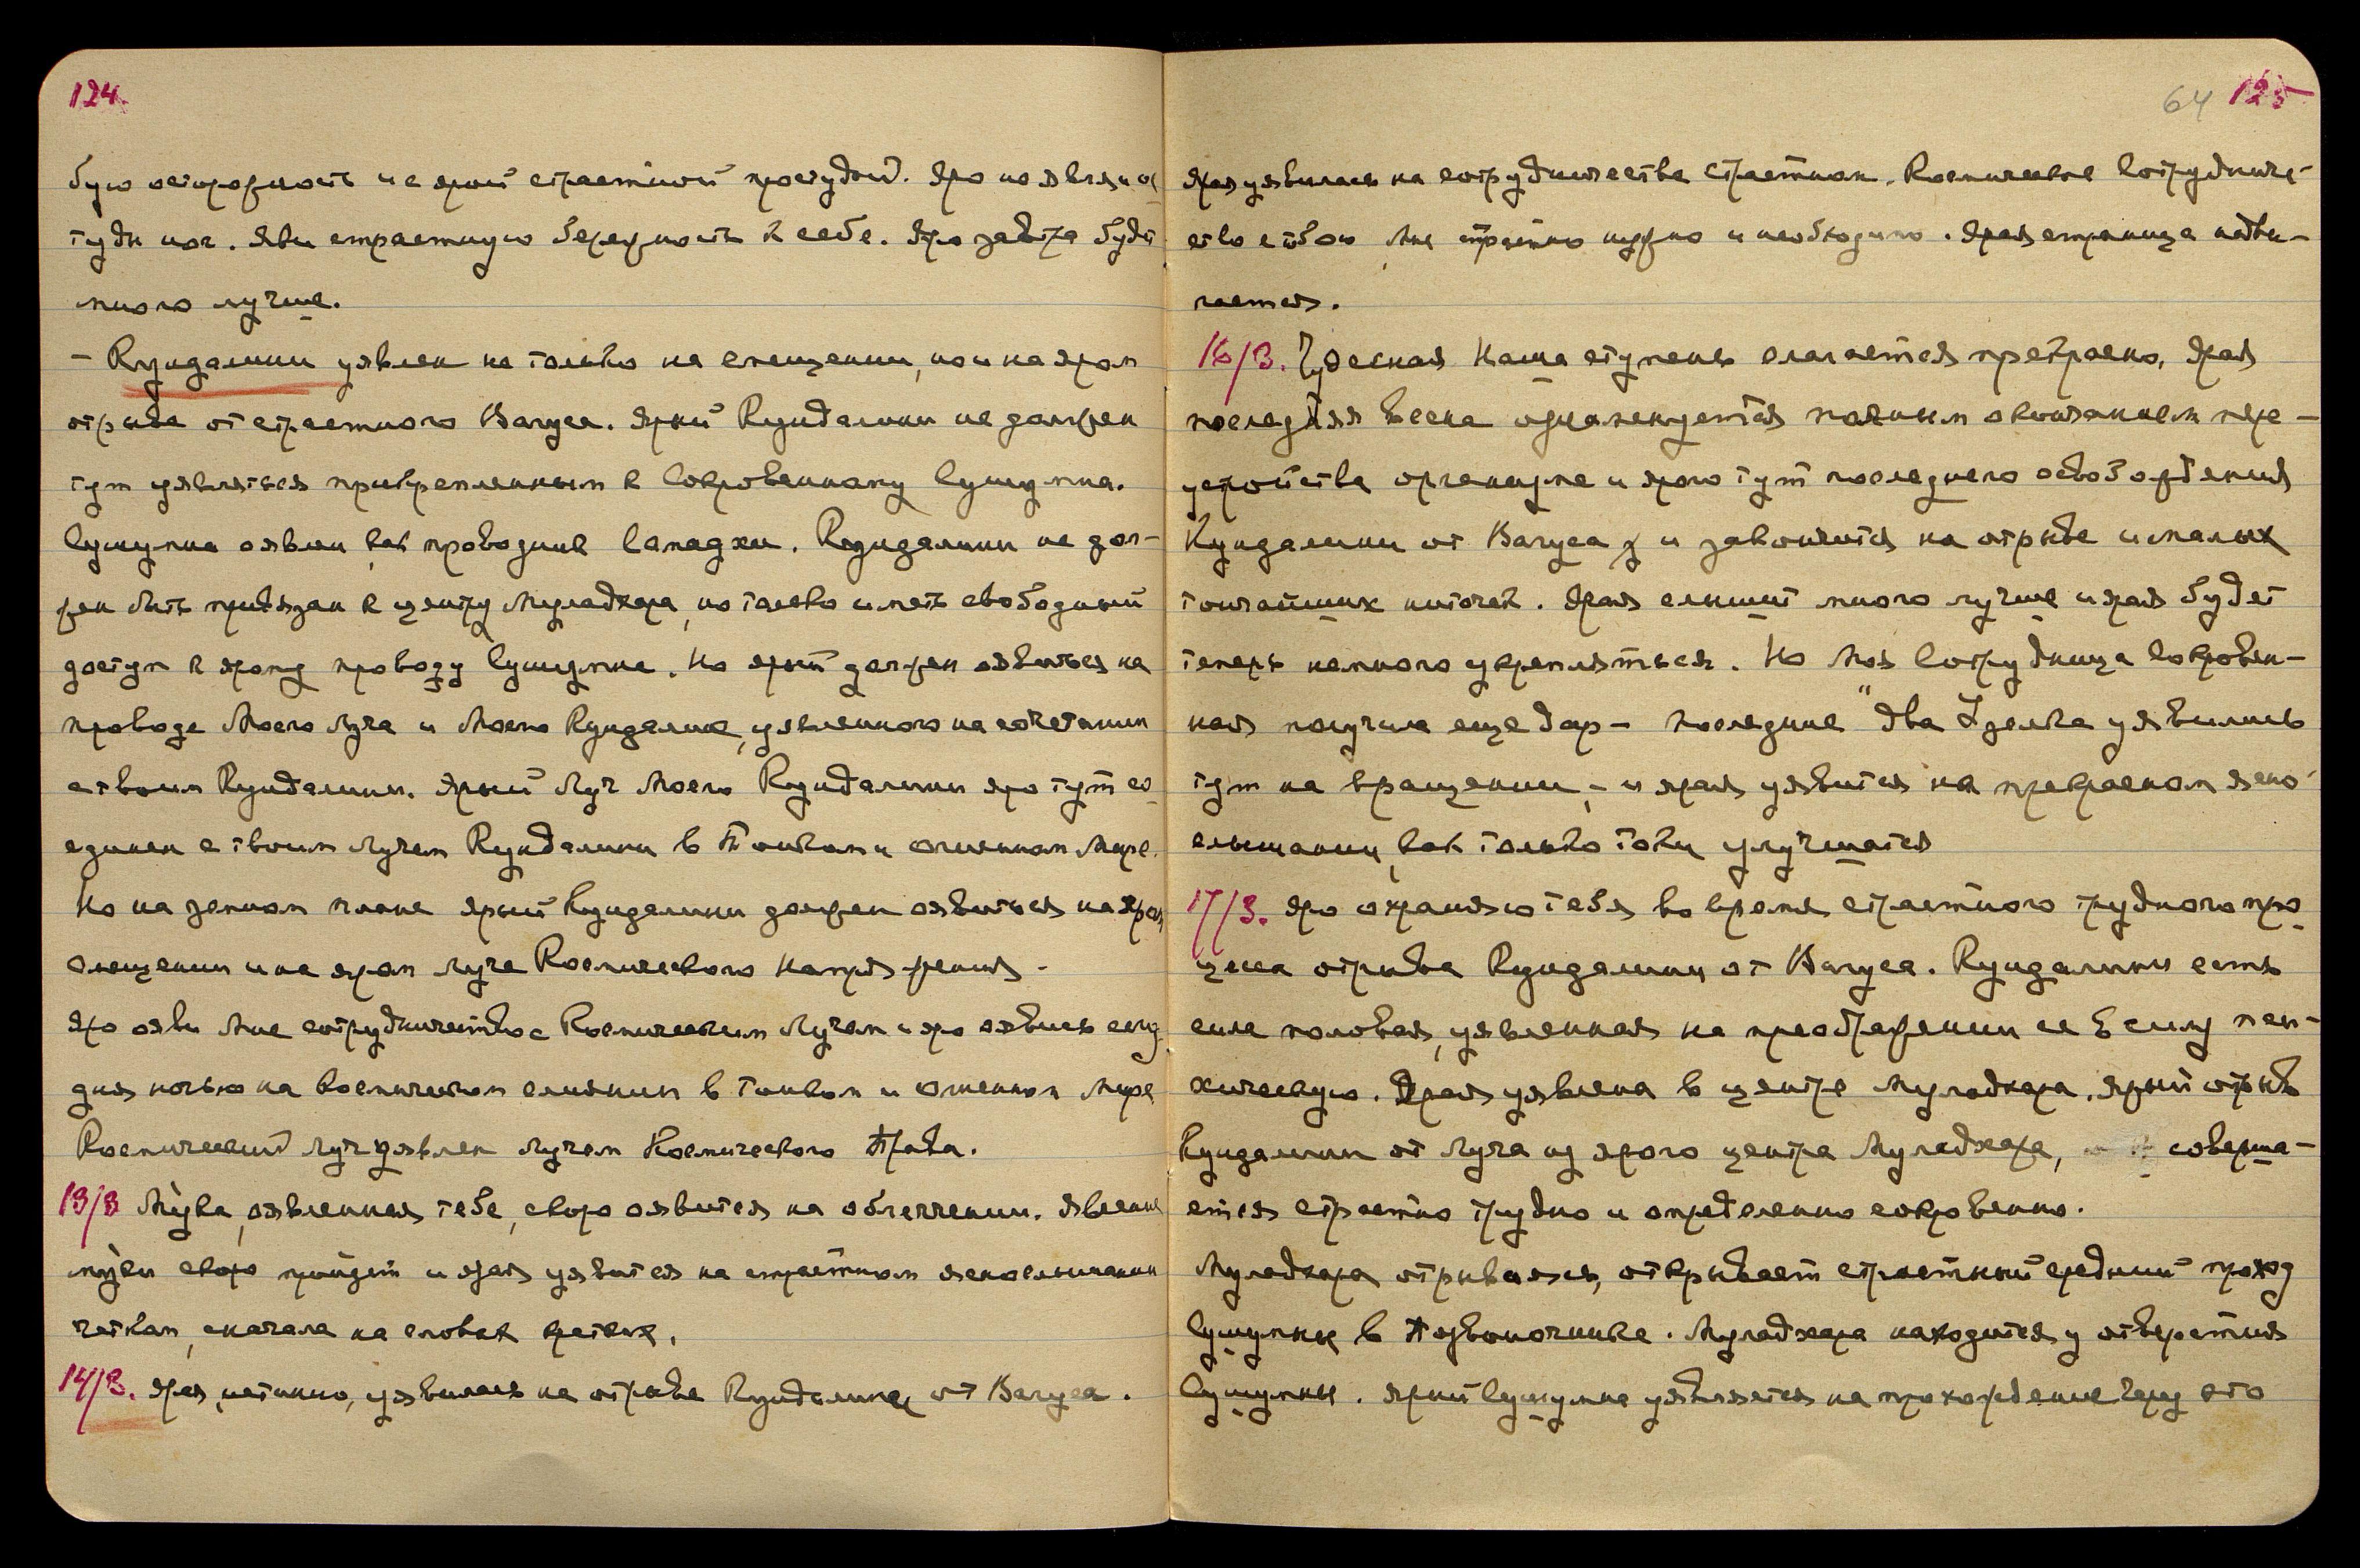 124.
бую осторожность и с ярой страстной простудой. Яро не явля
туды ног. Яви страстную бережность к себе. Яро завтра будет
много лучше.
- Кундалини уявлен не только на смещении, но и на яром
отрыве от страстного Вагуса. Ярый Кундалини не должен
тут уявляться прикрепленным к Сокровенному Сушумна.
Сушумна оявлен, как проводник Самадхи. Кундалини не дол-
жен быть привязан к центру Муладхара, но только иметь свободный
доступ к ярому проводу Сушумна. Но ярый должен оявиться на
проводе Моего Луча и Моего Кундалини, уявленного на сочетании
с твоим Кундалини. Ярый Луч Моего Кундалини яро тут со-
единен с твоим Лучем Кундалини в Тонком и Огненном Мире.
Но на земном плане ярый Кундалини должен оявиться на яром
смещении и на яром Луче Космического Напряжения.
Яро яви Мне сотрудничество с Космическим Лучем и яро оявись сегод
дня ночью на Космическом слиянии в Тонком и Огненном Мире
Космический Луч уявлен Лучем Космического Права.
13/3 Мýка, оявленная тебе, скоро оявится на облегчении. Явление
мýки скоро пройдет и ярая уявится на страстном яснослышании
четком, сначала на словах кратких.
14/3. Ярая, истинно, уявилась на отрыве Кундалини от Вагуса.
64 125
Ярая уявилась на сотрудничестве страстном. Космическое Сотрудниче-
ство с тобою Мне страстно нужно и необходимо. Ярая страница надви-
гается.
16/3. Чудесная Наша ступень слагается прекрасно. Ярая
последняя весна ознаменуется полным окончанием пере-
устройства организма и ярого тут последнего освобождения
Кундалини от Вагуса и закончится на отрыве и малых
тончайших ниточек. Ярая слышит много лучше и ярая будет
теперь немного укрепляться. Но Моя Сотрудница Сокровен-
ная получила еще дар - последние "два Узелка уявились
тут на вращении, - и ярая уявится на прекрасном ясно-
слышании, как только токи улучшатся
17/3. Яро охраняю тебя во время страстного трудного про-
цесса отрыва Кундалини от Вагуса. Кундалини есть
сила половая, уявленная на преображении ее в силу пси-
хическую. Ярая уявлена в центре Муладхара. Ярый отрыв
Кундалини от Луча из ярого центра Муладхара, соверша-
ется страстно трудно и определенно сокровенно.
Муладхара отрываясь, открывает страстный средний проход
Сушумны в Позвоночнике. Муладхара находится у отверстия
Сушумны. Ярый Сушумна уявляется на прохождение через это